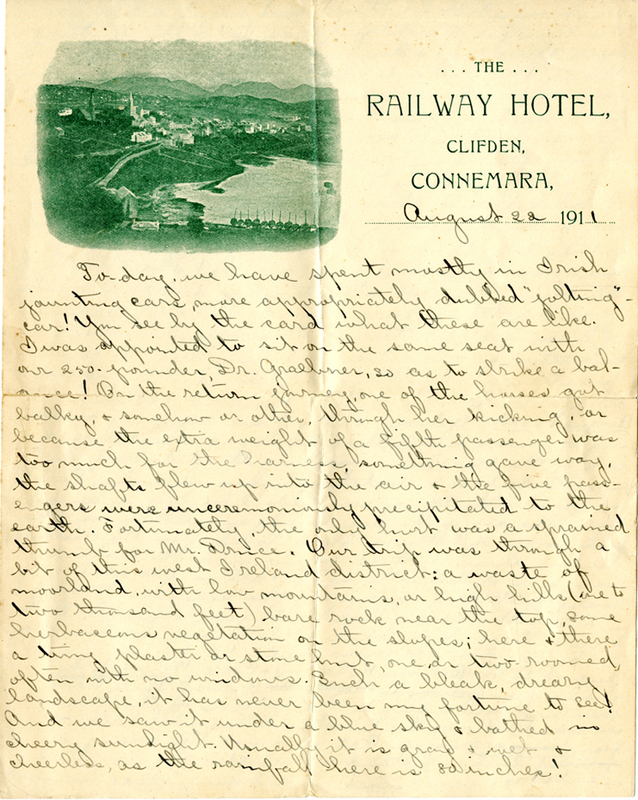 ... THE ...
RAILWAY HOTEL,
CLIFDEN,
CONNEMARA,
August 22 1911
To-day, we have spent mostly in Irish
jaunting cars, more appropriately dubbed "jolting"-
car! You see by the card what these are like.
I was appointed to sit on the same seat with
our 250-pounder Dr. Graebner, so as to strike a bal-
ance! On the return journey, one of the horses got
balky & somehow or other, through her kicking, or
because the extra weight of a fifth passenger was
too much for the harness, something gave way,
the shafts flew up into the air & the five pass-
engers were unceremoniously precipitated to the
earth. Fortunately, the only hurt was a sprained
thumb for Mr. Druce. Our trip was through a
bit of this west Ireland district: a waste of
moorland, with low mountains, or high hills (one to
two thousand feet) bare rock near the top, some
herbaceous vegetation on the slopes; here & there
a tiny plaster or stone hut, one or two roomed,
often with no windows. Such a bleak, dreary
landscape, it has never been my fortune to see!
And we saw it under a blue sky & bathed in
cheery sunlight. Usually it is gray & wet &
cheerless, as the rainfall here is 80 inches!